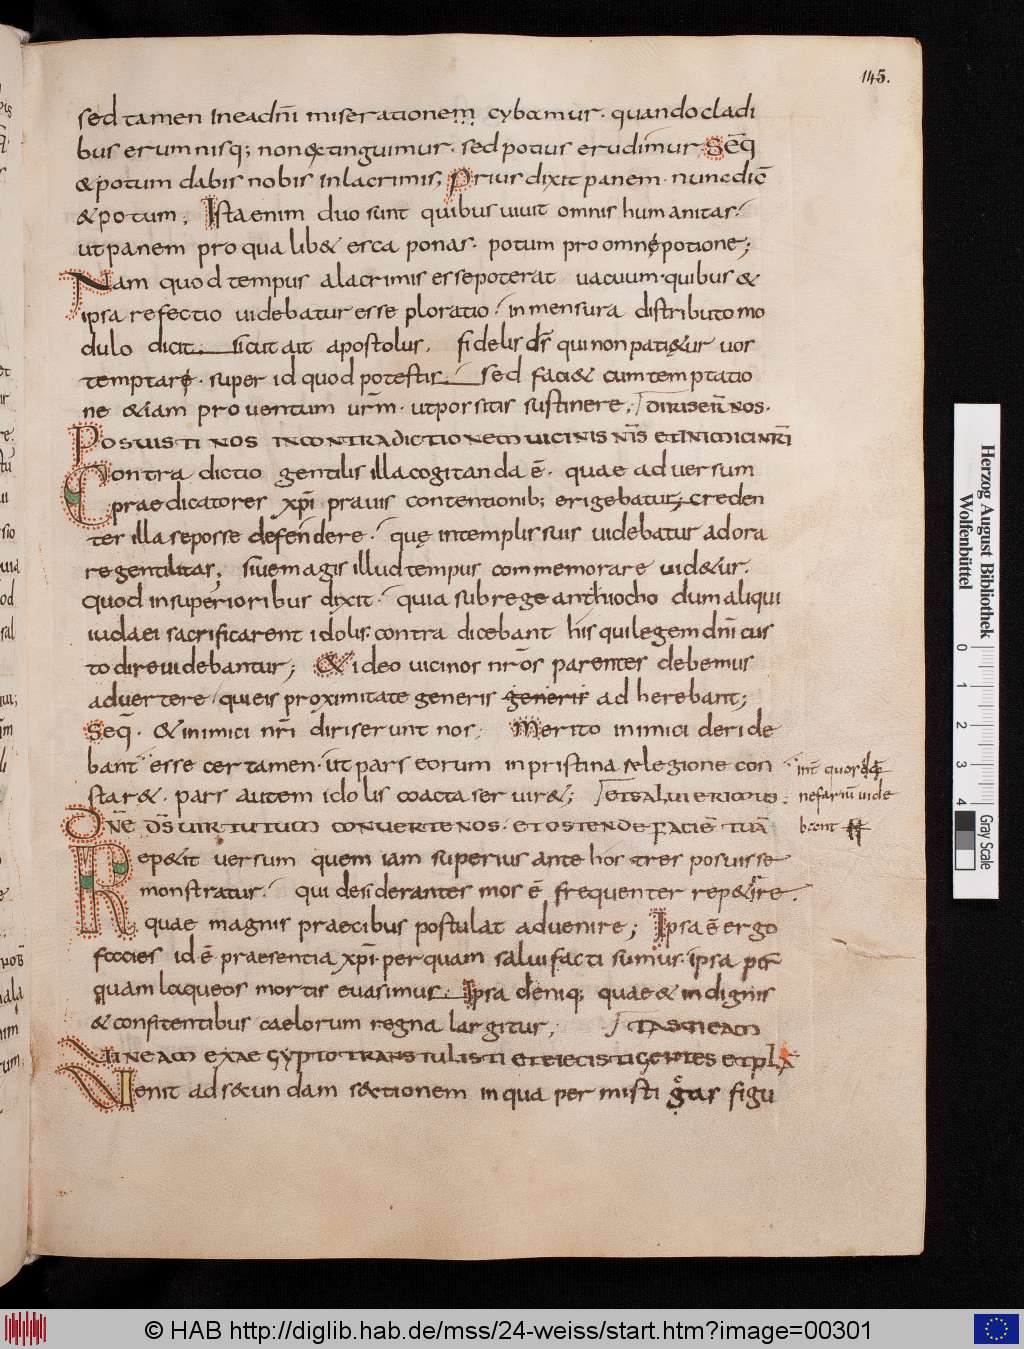 145.
sed tamen Ineadn̄i miserationem cybamur· quando cladi
bus erumnisq; non&tinguimur· sed potius erudimur; Seq̄
&potum dabis nobis Inlacrimis; Prius dixit panem· nunc dic̄
&potum; Ista enim duo sunt quibus uiuit omnis humanitas·
ut panem pro qua lib& esca ponas· potum pro omnę potione;
Nam quod tempus alacrimis esse poterat uacuum· quibus &
ipsa refectio uidebatur esse ploratio· in mensura distributo mo
dulo dicit· sicut ait apostolus· fidelis d̄s qui non pati&ur uos
temptarę· super id quod potestis· Sed faci& cum temptatio
ne &iam prouentum ur̄m· ut possitis sustinere; DIRISER̄ NOS·
POSUISTI NOS INCONTRADICTIONEM UICINIS NR̄IS ET INIMICI NR̄I
Contradictio gentilis illa cogitanda ē· quae aduersum
praedicatores xp̄i prauis contentionib; erigebatur; creden
ter illa se posse defendere· quę in templis suis uidebatur adora
re gentilitas; siue magis illud tempus commemorare uid&ur·
Quod in superioribus dixit· quia sub rege anthiocho dum aliqui
iudaei sacrificarent idolis· contra dicebant his qui legem dn̄i cus
todire uidebantur; &ideo uicinos nr̄os parentes debemus
aduertere qui eis proximitate generis generis adherebant;
Seq̄· &inimici nr̄i diriserunt nos· Merito inimici deride
bant esse certamen· ut pars eorum in pristina relegione con
star&· pars autem idolis coacta seruir&; ET SALUI ERIMUS·
int quos
nefariū uide
bant
DNE D̄S UIRTUTUM CONUERTE NOS· ET OSTENDE FACIĒ TUĀ
Rep&it uersum quem iam superius ante hos tres posuisse
monstratur· qui desiderantes mos ē frequenter rep&ire·
quae magnis praecibus postulat aduenire; Ipsa ē ergo
facies id ē praesentia xp̄i· per quam salui facti sumus· ipsa p̄
quam laqueos mortis euasimus· Ipsa deniq; quae & indignis
&confitentibus caelorum regna largitur; TAS EAM
UINEAM EX AEGYPTO TRANSTULISTI ET EIECISTI GENTES ET PLĀ
Uenit ad secundam sectionem in qua per misti figu
Herzog August Bibliothek
Wolfenbüttel
0 1 2 3 4
Gray Scale
© HAB http://diglib.hab.de/mss/24-weiss/start.htm?image=00301